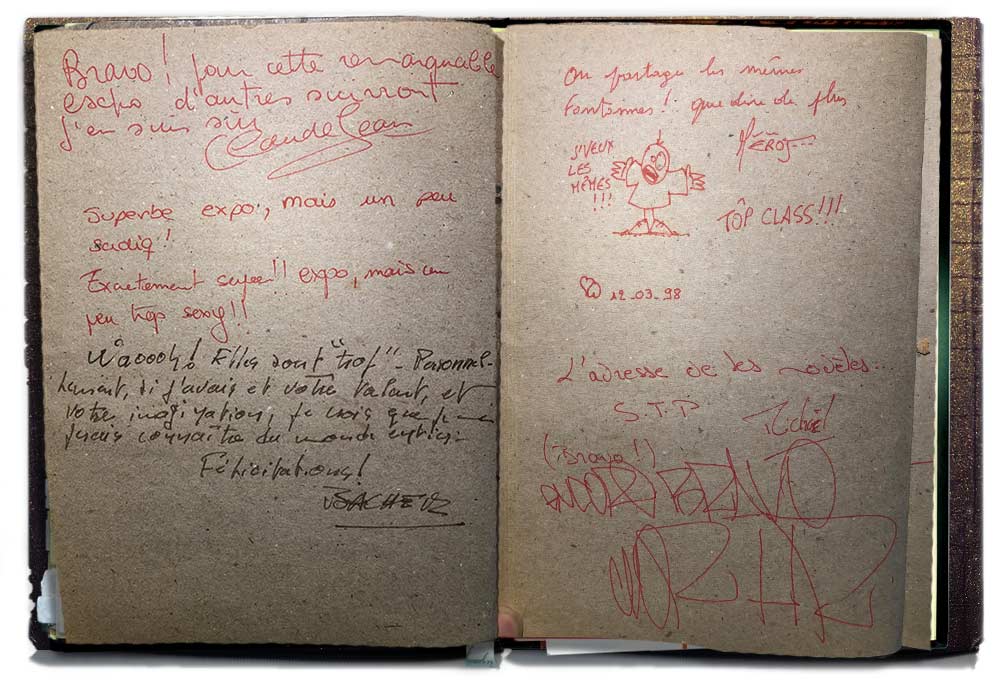 Bravo! pour cette remarquable
expo d'autres suivront
j'en suis sur
Claude Jean
Superbe expo, mais un peu
sadiq!
Exactement super!! expo, mais un
peu trop sexy!!
Waoooh! Elles sont "trop" - Personnel-
lement, si j'avais et votre talent, et
votre imagination, je crois que je me
ferais connaître du monde entier.
Félicitations!
On partage les mêmes
Fantasmes! que dire de plus
J'VEUX
LES
MÊMES
!!!
TÔP CLASS!!!
12-03-98
L'adresse de tes modèles...
S.T.P
Michaël
(Bravo!)
BRAVO